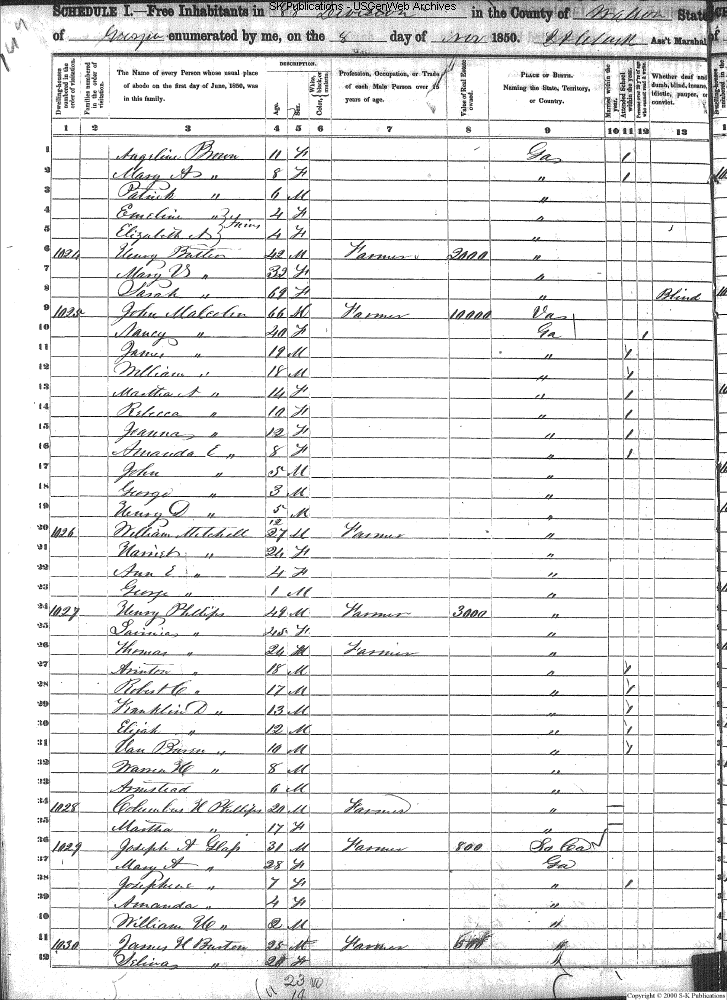 SKPublications - USGenWeb Archives
SCHEDULE I.—Free Inhabitants in 88 Division in the County of State
of Georgia enumerated by me, on the 8 day of Nov 1850. Ass't Marshal
Dwelling-house numbered in the order of visitation.
Families numbered in the order of visitation.
The Name of every Person whose usual place of abode on the first day of June, 1850, was in this family.
DESCRIPTION.
Age.
Sex.
White, black, or mulatto. Color,
Profession, Occupation, or Trade of each Male Person over 15 years of age.
Value of Real Estate owned.
PLACE OF BIRTH. Naming the State, Territory, or Country.
Married within the year.
Attended School within the year.
Whether deaf and dumb, blind, insane, idiotic, pauper, or convict.
1 2 3 4 5 6 7 8 9 10 11 12 13
1 Angeline Brown 11 F Ga 1
2 Mary A " 8 F " 1
3 Patrick " 6 M "
4 Emeline " Twins 4 F "
5 Elizabeth A 4 F "
6 1024 Henry 42 M Farmer 2000 "
7 Mary " 32 F "
8 Sarah " 69 F " Blind
9 1025 John Malcolm 66 M Farmer 10000 Va
10 Nancy " 40 F Ga 1
11 James " 19 M " 1
12 William " 18 M " 1
13 Martha A " 14 F " 1
14 Rebecca " 10 F " 1
15 Joanna " 12 F " 1
16 Amanda E " 8 F " 1
17 John " 5 M "
18 George " 3 M "
19 Henry D " 5/12 M "
20 1026 William Mitchell 27 M Farmer "
21 Harriet " 24 F "
22 Ann E " 4 F "
23 George " 1 M "
24 1027 Henry Phillips 49 M Farmer 3000 "
25 " 45 F "
26 Thomas " 24 M Farmer "
27 " 18 M " 1
28 Robert C " 17 M " 1
29 Franklin D " 13 M " 1
30 Elijah " 12 M " 1
31 Van Buren " 10 M " 1
32 Warren H " 8 M "
33 Armstead 6 M "
34 1028 Columbus H Phillips 20 M Farmer "
35 Martha " 17 F "
36 1029 Joseph A Glass 31 M Farmer 800 So Ca
37 Mary A " 28 F Ga
38 Josephene " 7 F " 1
39 Amanda " 4 F "
40 William H " 2 M "
41 1030 James H Burton 25 M Farmer "
42 " 20 F "
23
19
Copyright © 2000 S-K Publications